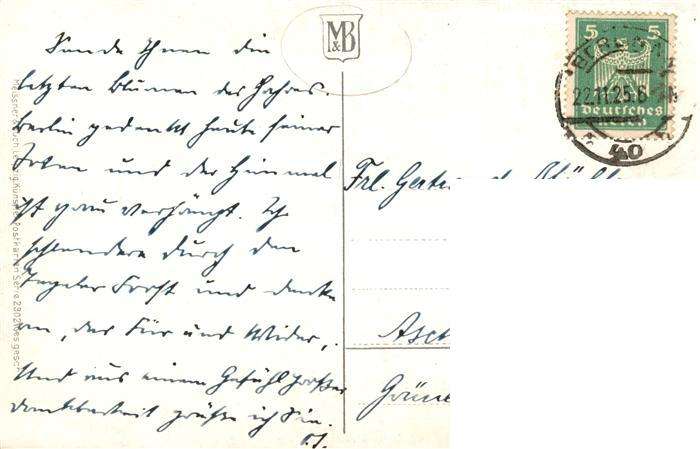 Sende Ihnen die
letzten Blumen des Jahres.
Berlin gedenkt heute seiner
Toten und der Himmel
ist grau verhängt. Ich
schlendere durch den
Tegeler Forst und denke
an, das Für und Wider,
Und aus einem Gefühl großer
Dankbarkeit grüße ich Sie.
M&B
5 5
BERLIN
22.11.25.6
Deutsches
Reich
40
Frl.
Asch
Grüne